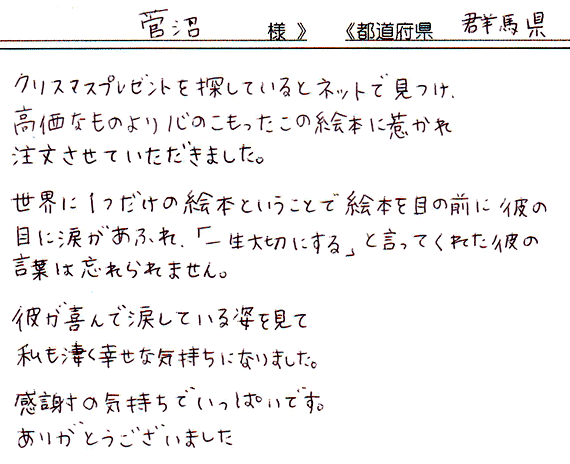 菅沼 様 》 《都道府県 群馬県
クリスマスプレゼントを探しているとネットで見つけ、
高価なものより心のこもったこの絵本に惹かれ
注文させていただきました。
世界に1つだけの絵本ということで絵本を目の前に彼の
目に涙があふれ、「一生大切にする」と言ってくれた彼の
言葉は忘れられません。
彼が喜んで涙している姿を見て
私も凄く幸せな気持ちになりました。
感謝の気持ちでいっぱいです。
ありがとうございました